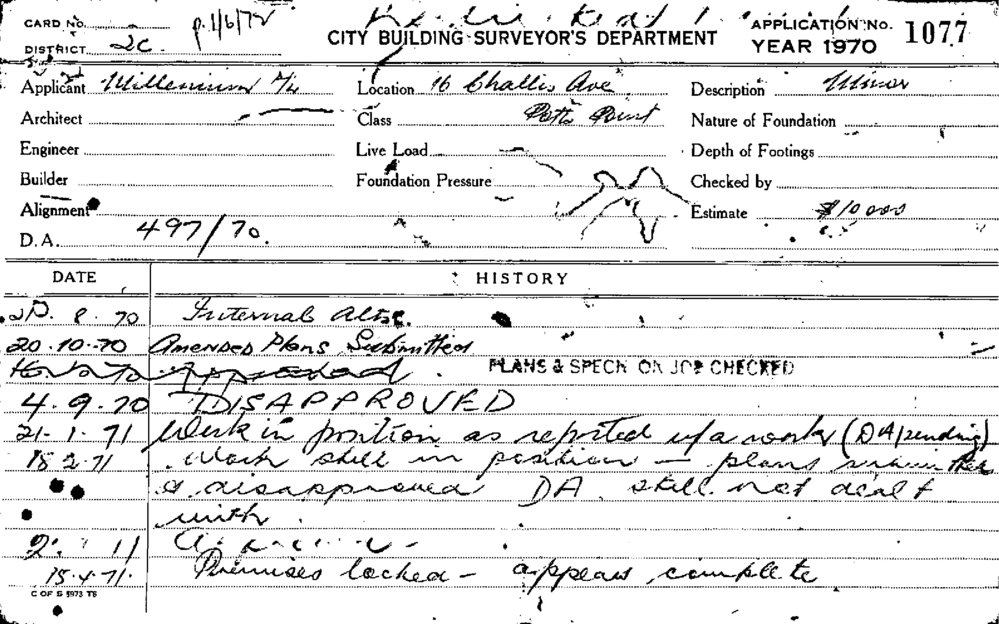 CARD No. p.1/6/72
CITY BUILDING SURVEYOR'S DEPARTMENT
APPLICATION No. 1077
YEAR 1970
DISTRICT 2C.
Applicant Millennium P/L Location 16 Challis Ave Description Minor
Architect Class Potts Point Nature of Foundation
Engineer Live Load Depth of Footings
Builder Foundation Pressure Checked by
Alignment Estimate $10000
D.A. 497/70.
DATE HISTORY
8. 70 Internal Alts.
20.10.70 Amended Plans Submitted
PLANS & SPECN ON JOB CHECKED
4.9.70 DISAPPROVED
21.1.71 Work in position as reported u/a work (DA pending)
15 2.71 Work still in position — plans
disapproved DA still not dealt
with.
15.4.71. Premises locked – appears complete
C OF S 5973 TS